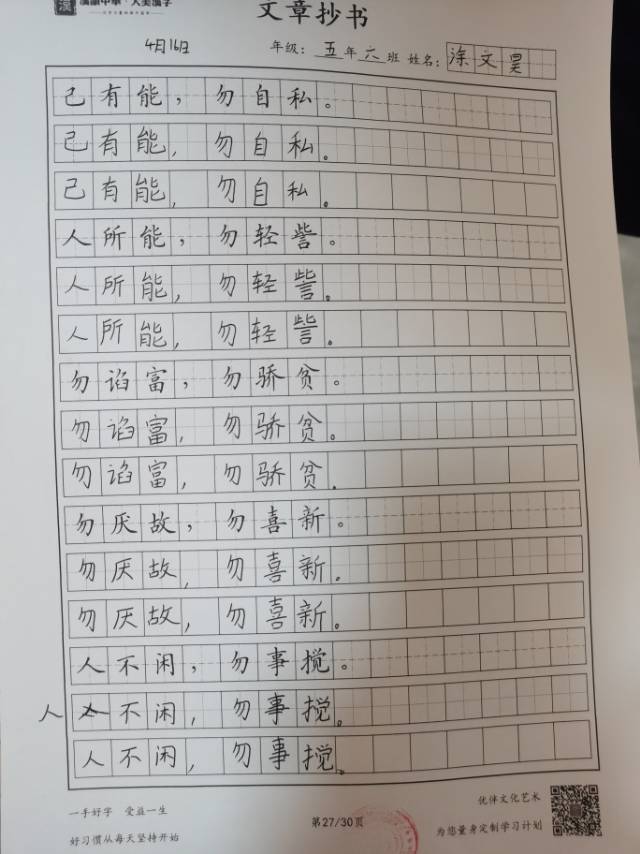 漢韻中華·大美漢字
文章抄书
4月16日
年级：五年六班 姓名：涂文昊
己有能，勿自私。
己有能，勿自私。
己有能，勿自私。
人所能，勿轻訾。
人所能，勿轻訾。
人所能，勿轻訾。
勿谄富，勿骄贫。
勿谄富，勿骄贫。
勿谄富，勿骄贫.
勿厌故，勿喜新。
勿厌故，勿喜新。
勿厌故，勿喜新。
人不闲，勿事搅。
人不闲，勿事搅。
人不闲，勿事搅。
一手好字 受益一生
好习惯从每天坚持开始
第27/30页
优伴文化艺术
为您量身定制学习计划